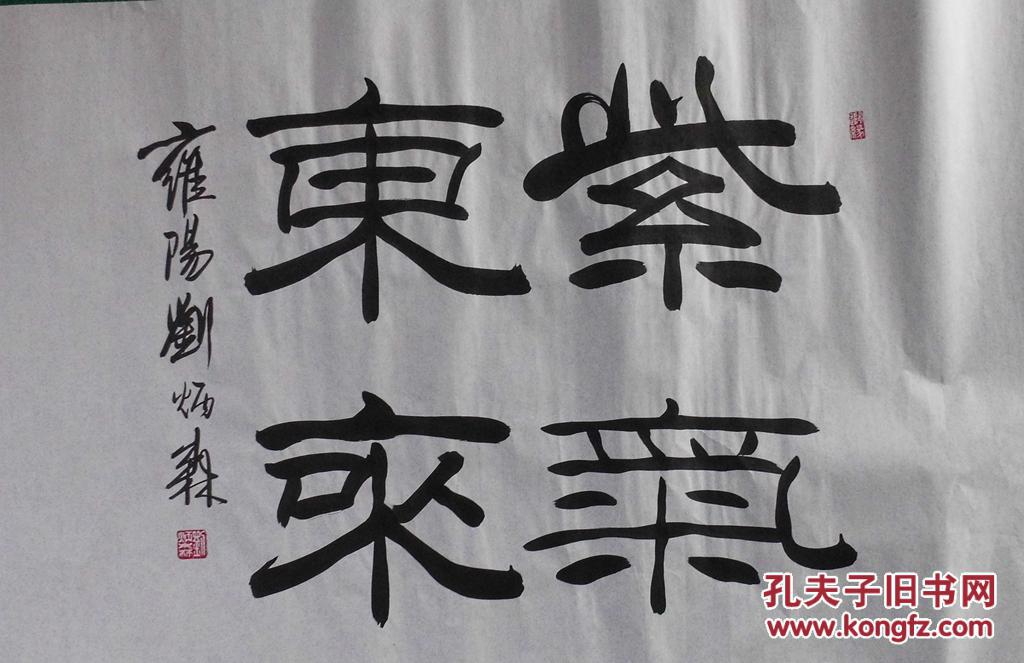 紫氣
東來
雍陽劉炳森
劉炳森
孔夫子旧书网
www.kongfz.com